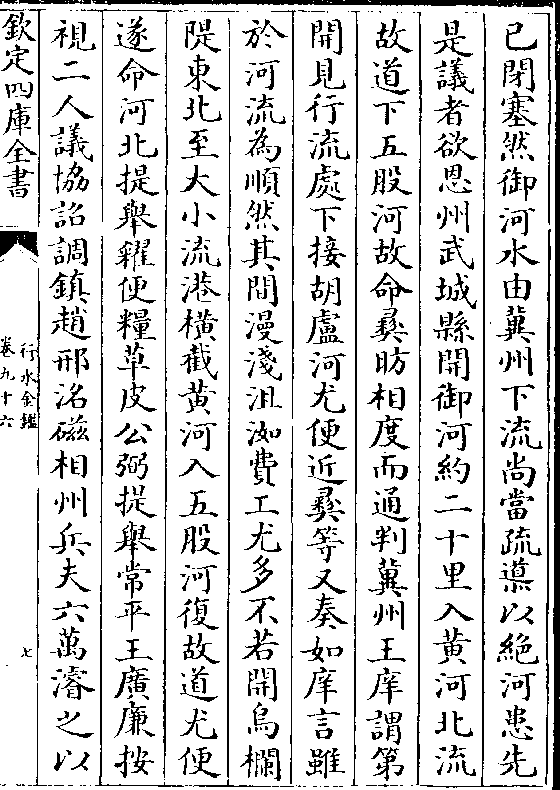 已閉塞然御河水由冀州下流尚當疏導以絶河患先
是議者欲恩州武城縣開御河約二十里入黄河北流
故道下五股河故命彛昉相度而通判冀州王庠謂第
開見行流處下接胡盧河尤便近彛等又奏如庠言雖
於河流為順然其間漫淺沮洳費工尤多不若開烏欄
隄東北至大小流港横截黄河入五股河復故道尤便
遂命河北提舉糴便糧草皮公弼提舉常平王廣廉按
視二人議協詔調鎮趙邢洺磁相州兵夫六萬濬之以
欽定四庫全書
行水金鑑
卷九十六
七